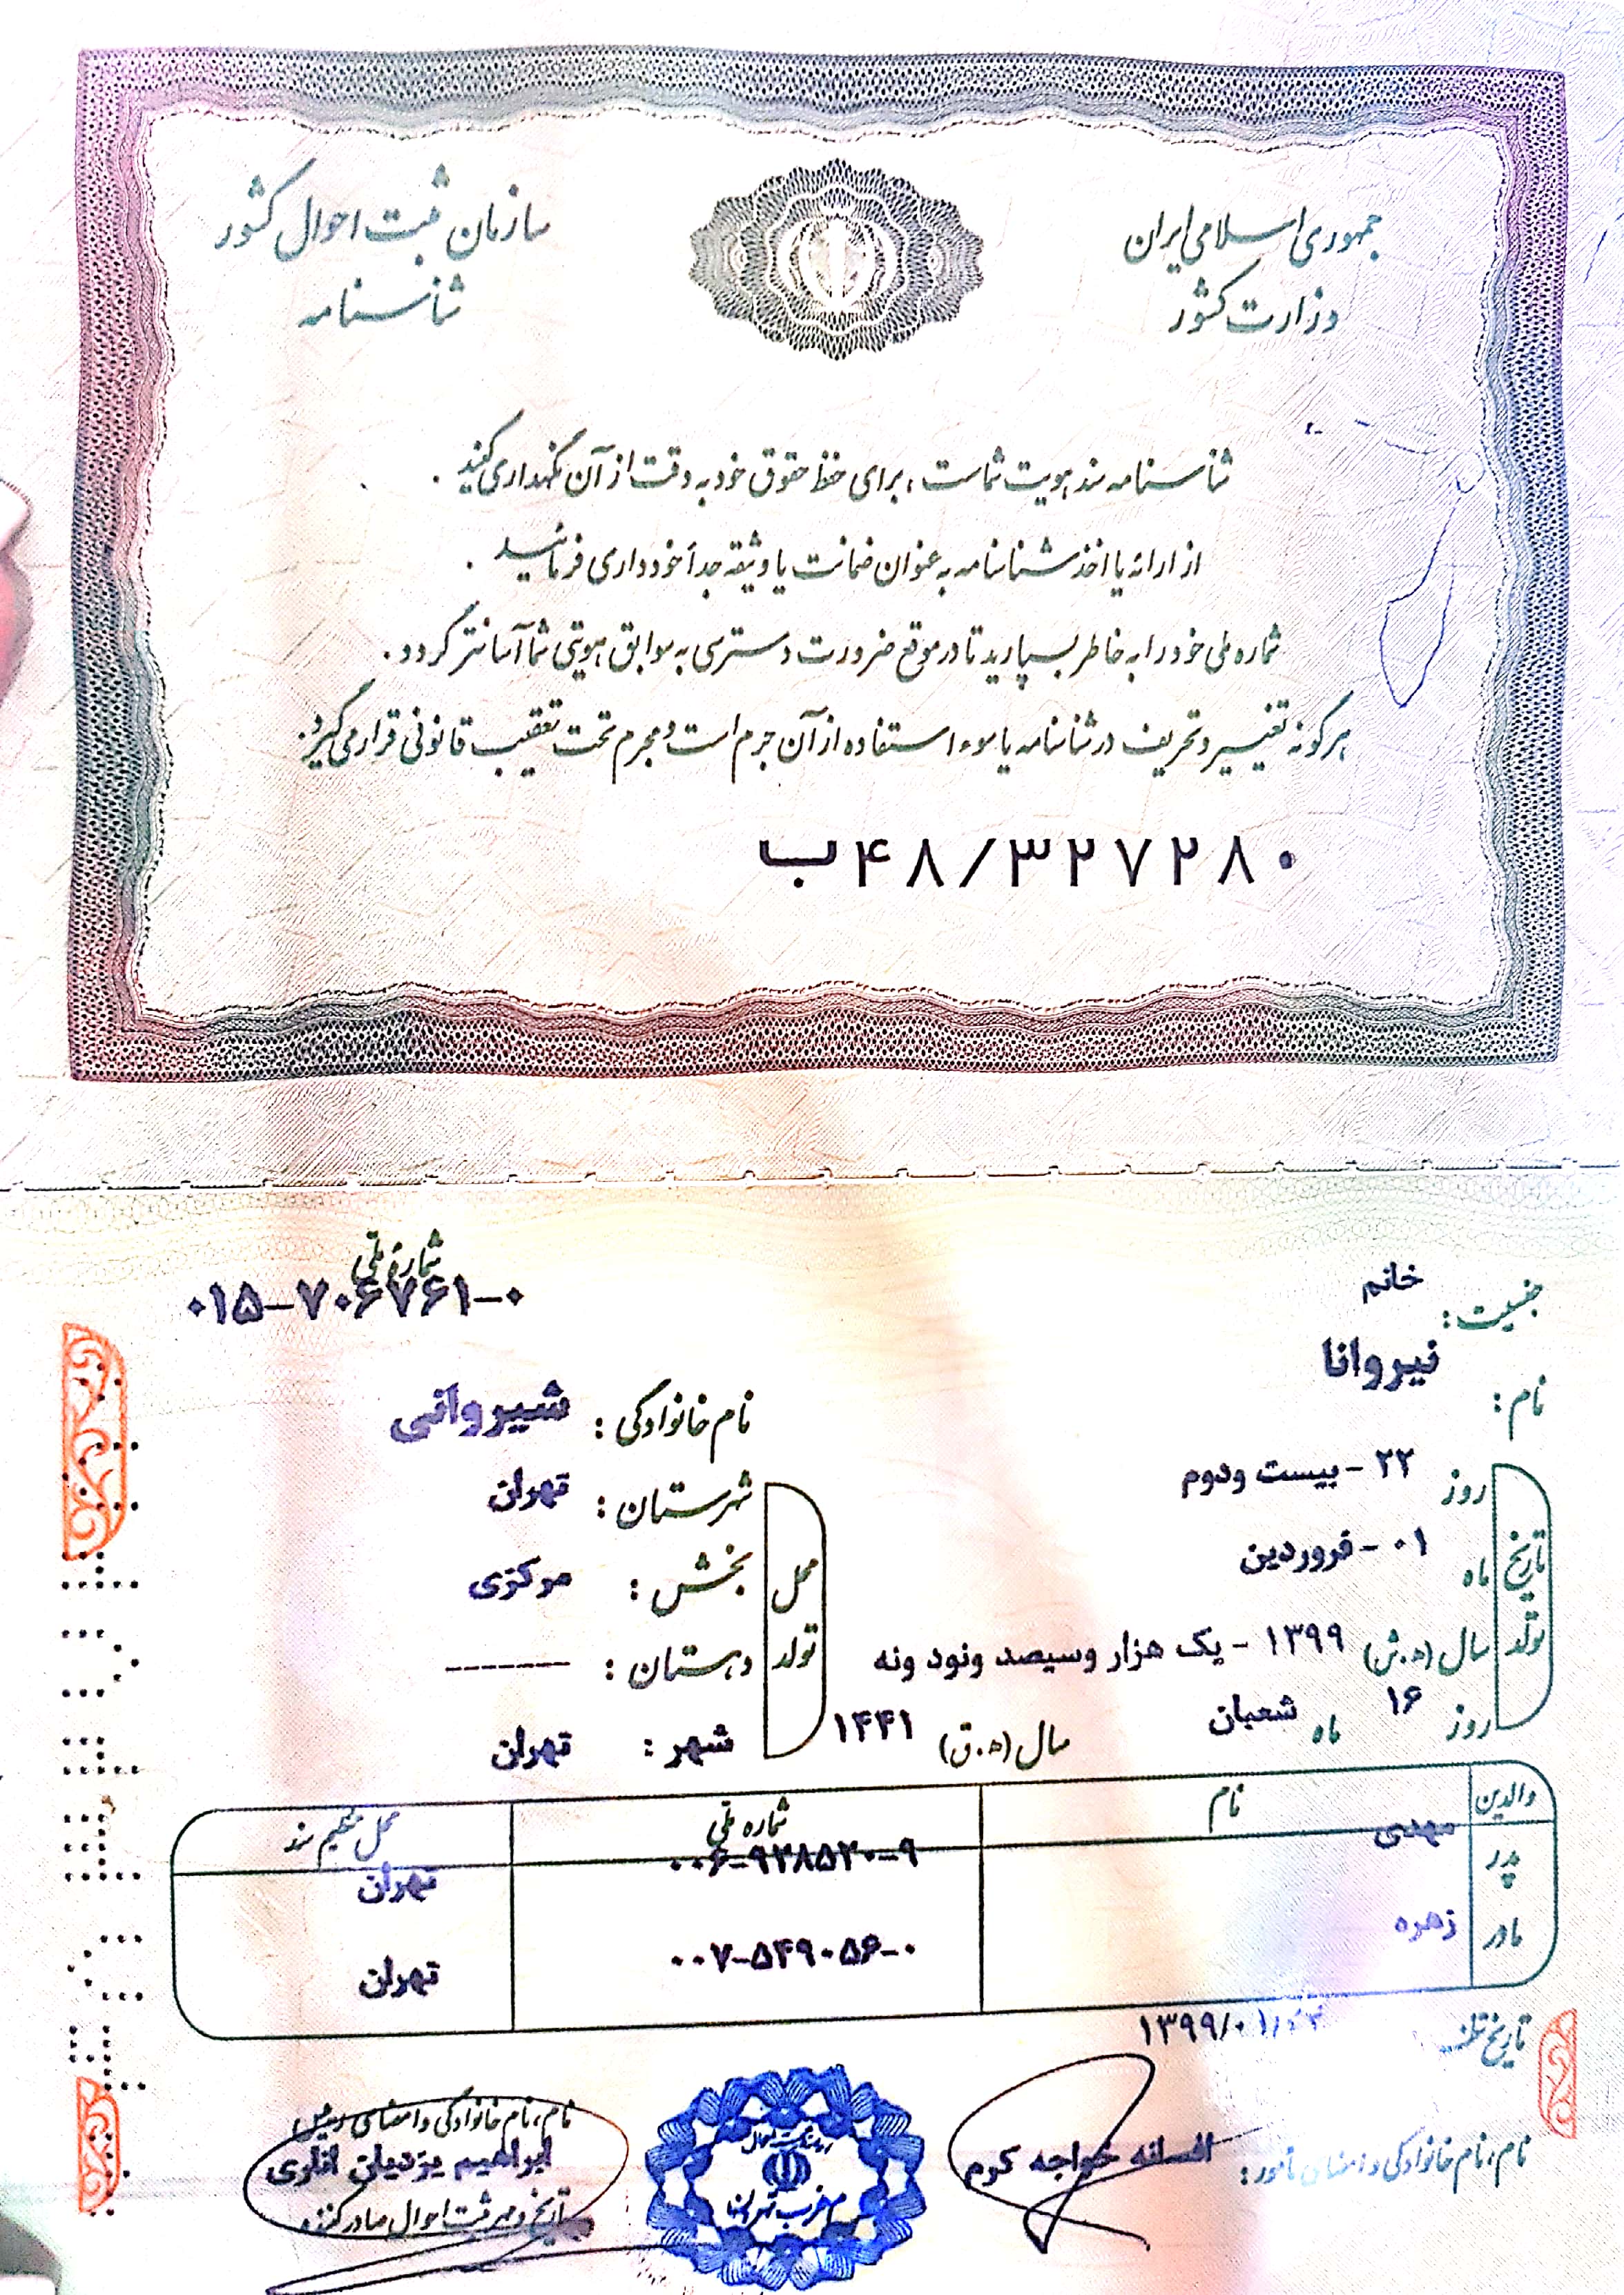 جمهوری اسلامی ایران
وزارت کشور
سازمان ثبت احوال کشور
شناسنامه
شناسنامه سند هویت شماست، برای حفظ حقوق خود به دقت از آن نگهداری کنید.
از ارائه یا اخذ شناسنامه به عنوان ضمانت یا وثیقه جداً خودداری فرمائید.
شماره ملی خود را به خاطر بسپارید تا در موقع ضرورت دسترسی به سوابق هویتی شما آسانتر گردد.
هرگونه تغییر و تحریف در شناسنامه یا سوء استفاده از آن جرم است و مجرم تحت تعقیب قانونی قرار می گیرد.
ب۴۸/۳۲۷۲۸۰
شماره ملی
۰۱۵-۷۰۶۷۶۱-۰
جنسیت: خانم
نام: نیروانا
نام خانوادگی: شیروانی
تاریخ تولد
روز ۲۲ - بیست ودوم
ماه ۰۱ - فروردین
سال (ه.ش) ۱۳۹۹ - یک هزار وسیصد ونود ونه
روز ۱۶ ماه شعبان سال (ه.ق) ۱۴۴۱
محل تولد
شهرستان: تهران
بخش: مرکزی
دهستان: --------
شهر: تهران
والدین نام شماره ملی محل تنظیم سند
پدر مهدی ۰۰۶-۹۲۸۵۲۰-۹ تهران
مادر زهره ۰۰۷-۵۴۹۰۵۶-۰ تهران
تاریخ ۱۳۹۹/۰۱/
نام، نام خانوادگی و امضای مأمور: افسانه خواجه کرم
نام، نام خانوادگی و امضای رئیس
ابراهیم یزدیان
تاریخ و مهر ثبت احوال صادرکننده
غرب تهران